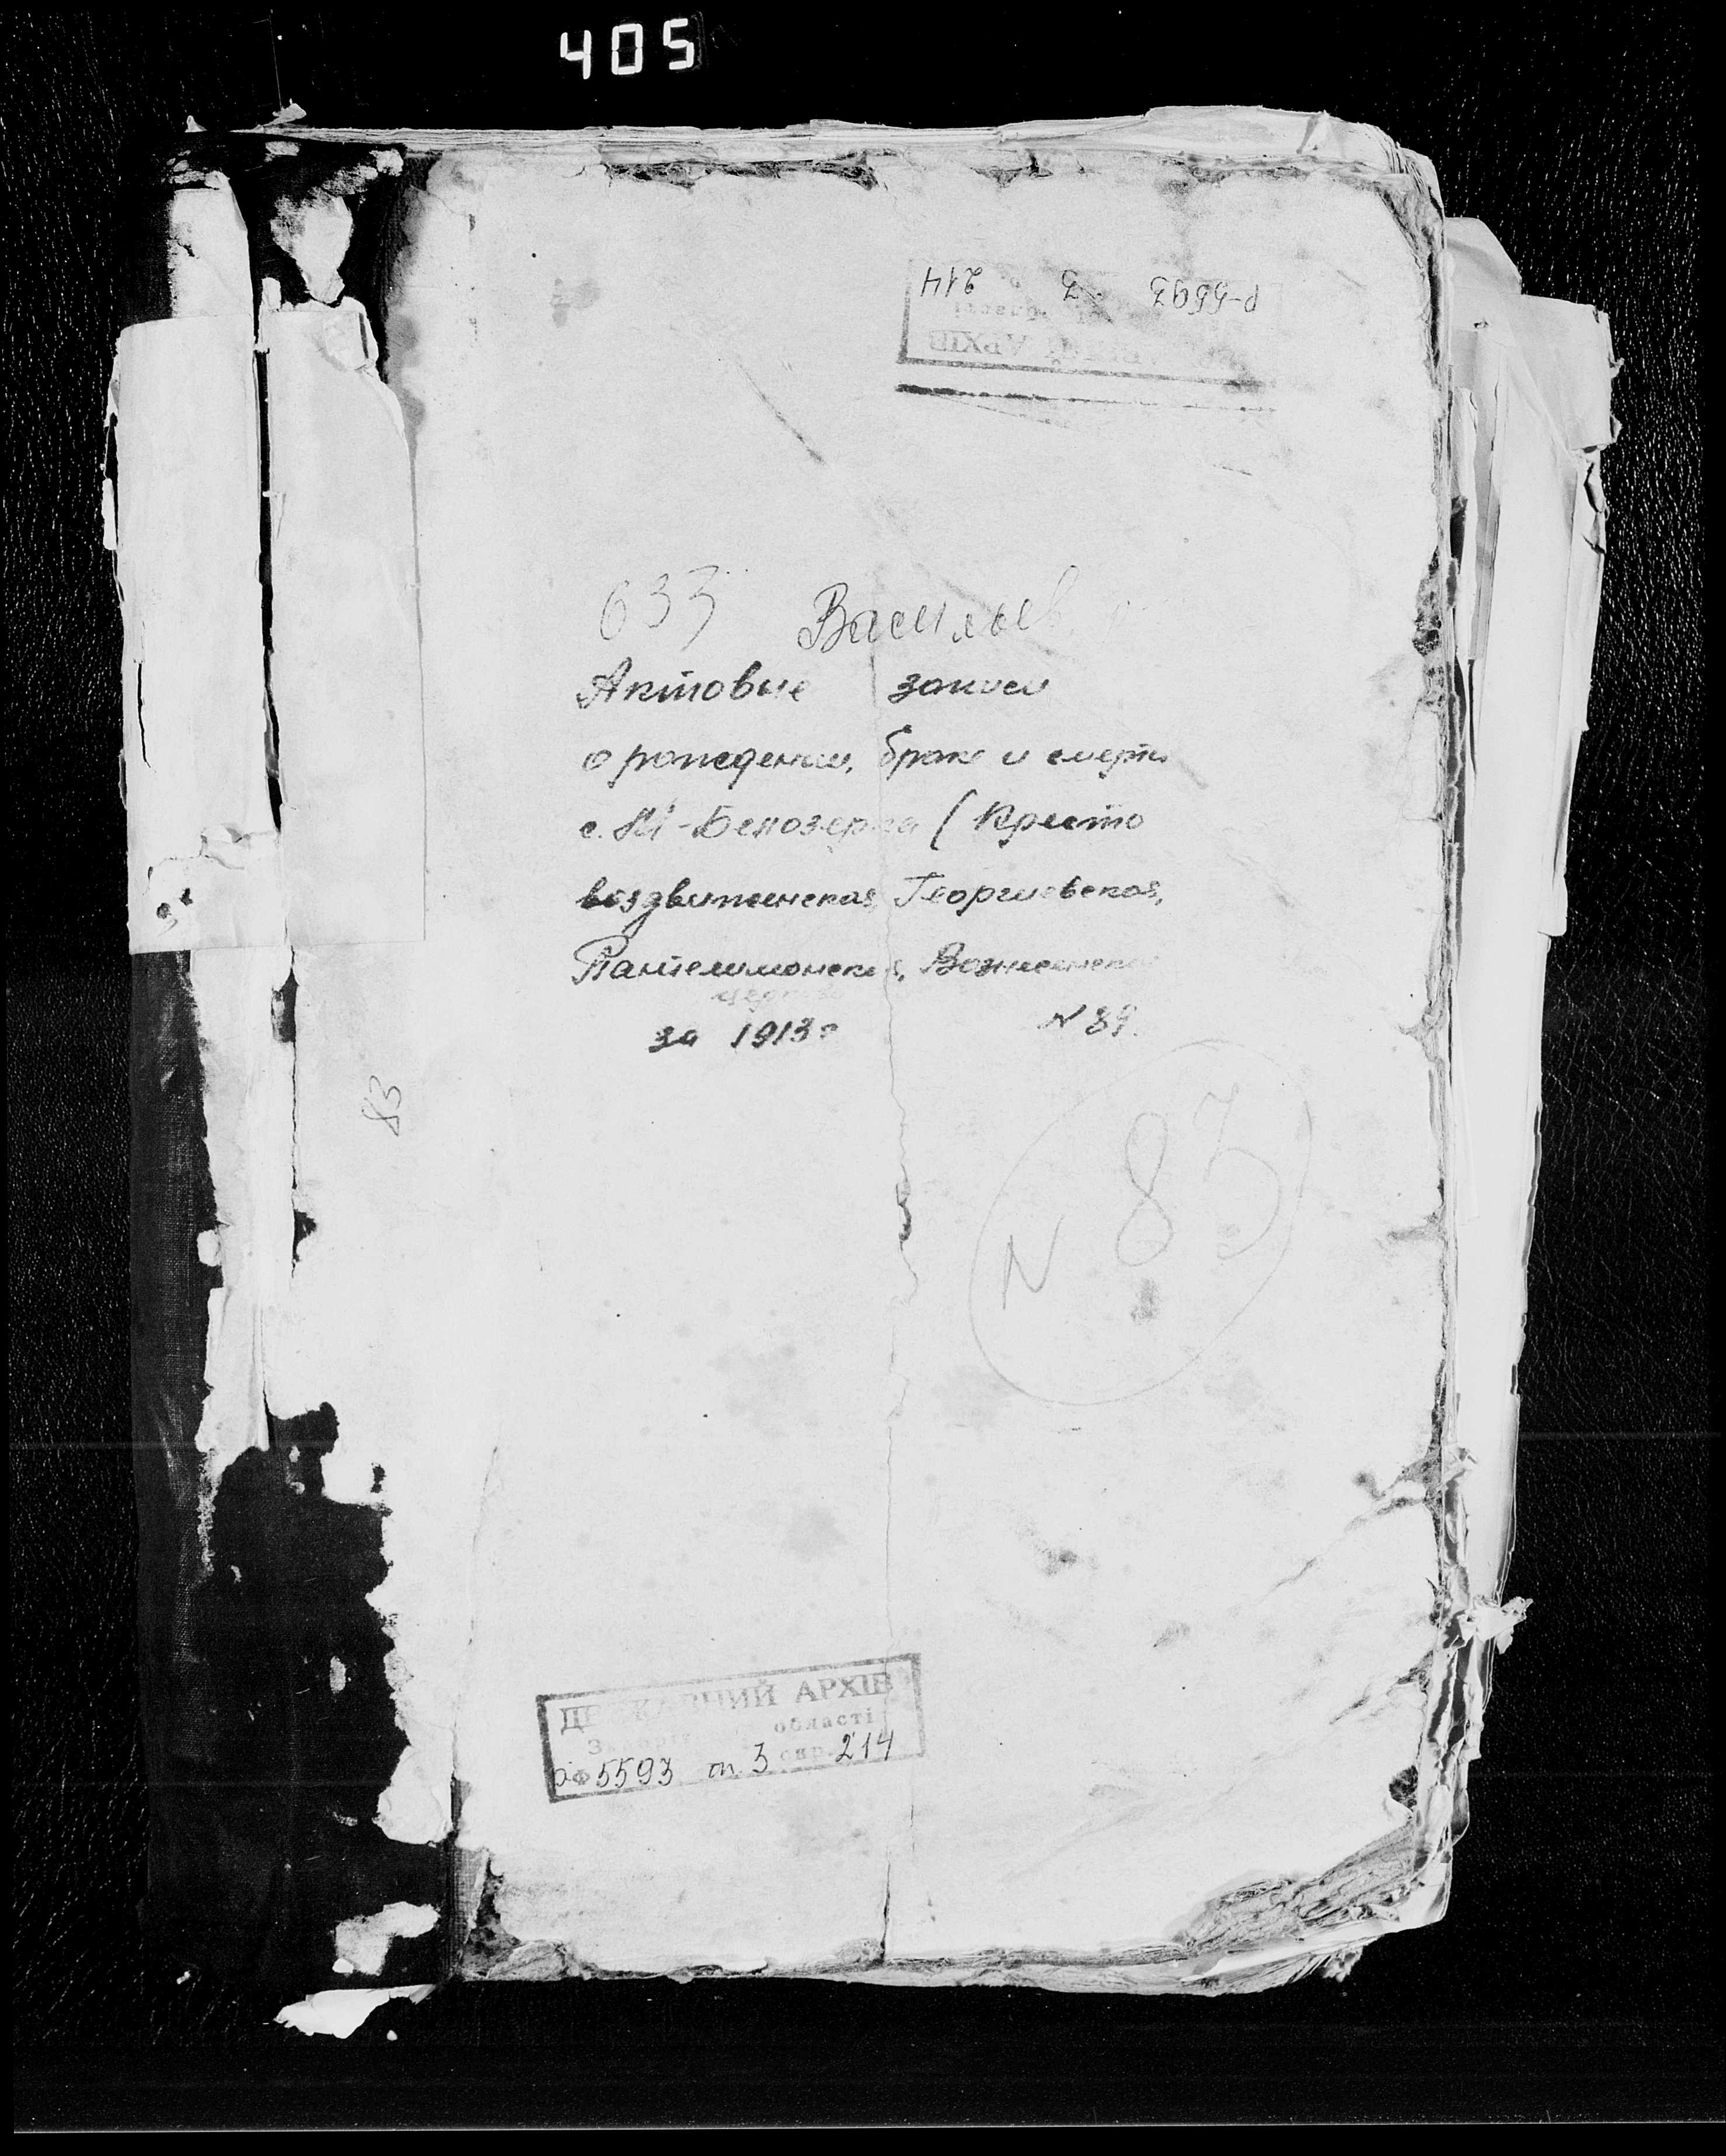 405
Р-5593 3 214
АРХІВ
633 Васильев
Актовые записи
о рождении, браке и смерти
с. М-Белозерка (Кресто
воздвиженская, Георгиевская,
Пантелимонская, Вознесенская
церкви
за 1913г N 89.
83
N 83
ДЕРЖАВНИЙ АРХІВ
області
Ф 5593 оп. 3 спр. 214